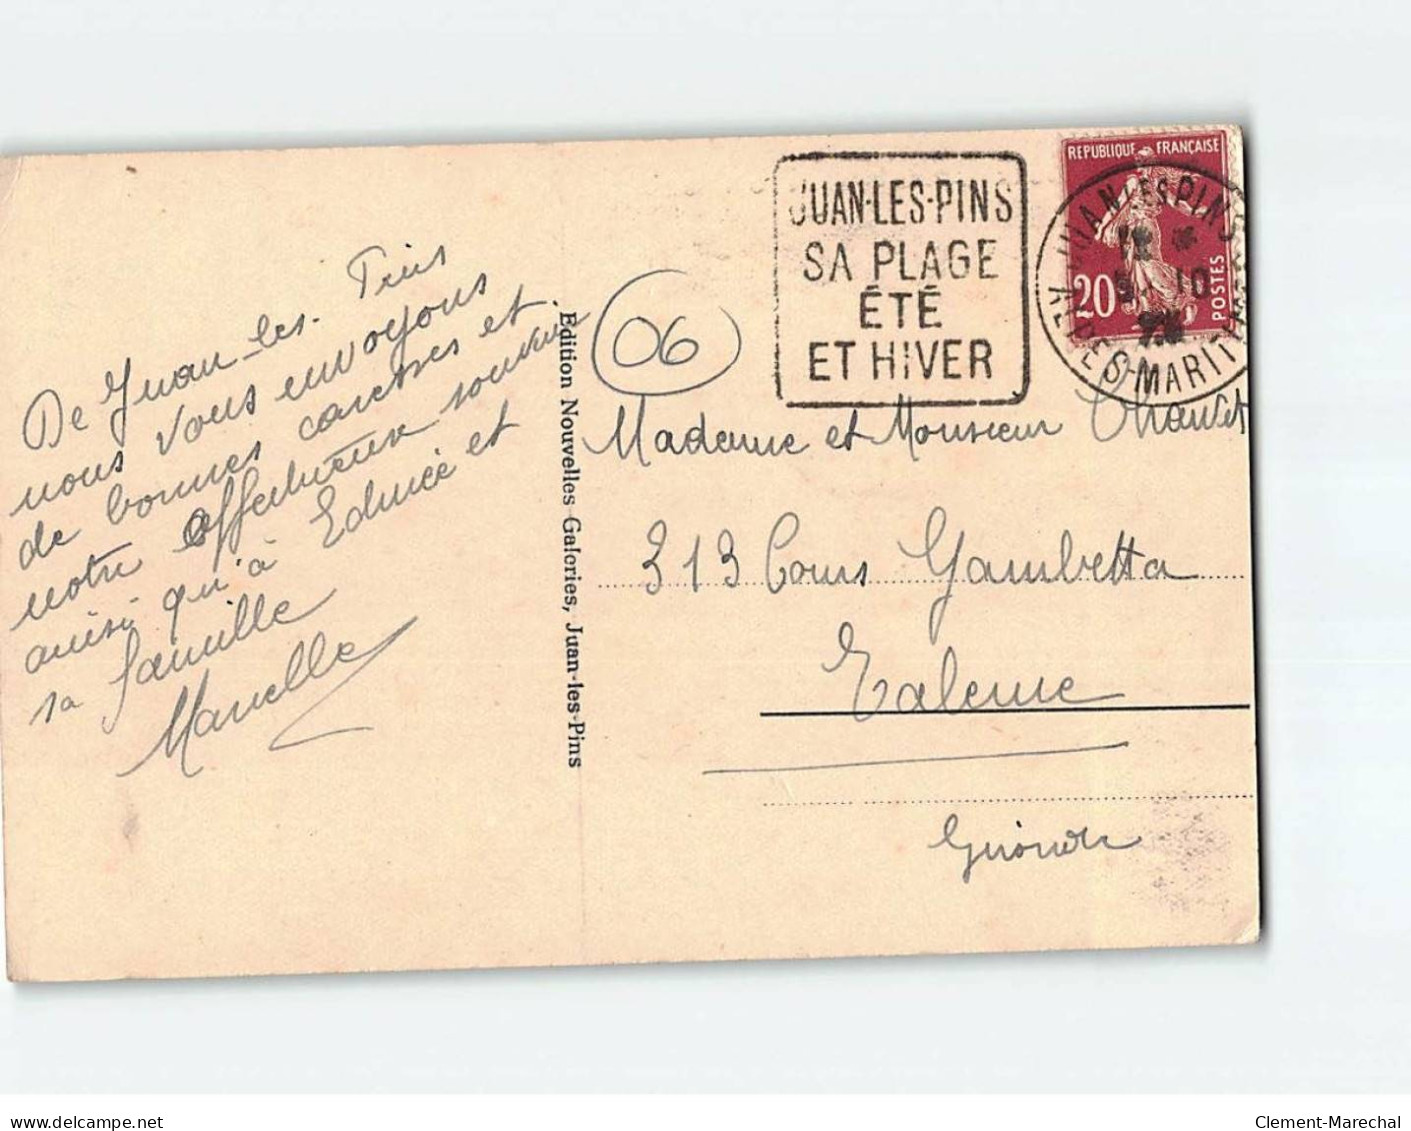 De Juan-les-Pins
nous vous envoyons
de bonnes caresses et
notre affectueux souvenir
ainsi qu'à Edmée et
sa famille
Marcelle
Edition Nouvelles Galeries, Juan-les-Pins
06
JUAN-LES-PINS
SA PLAGE
ÉTÉ
ET HIVER
REPUBLIQUE FRANÇAISE
20
POSTES
JUAN LES PINS
10
ALPES-MARITIMES
Madame et Monsieur
313 Cours Gambetta
Talence
Gironde
delcampe.net
Clement-Marechal